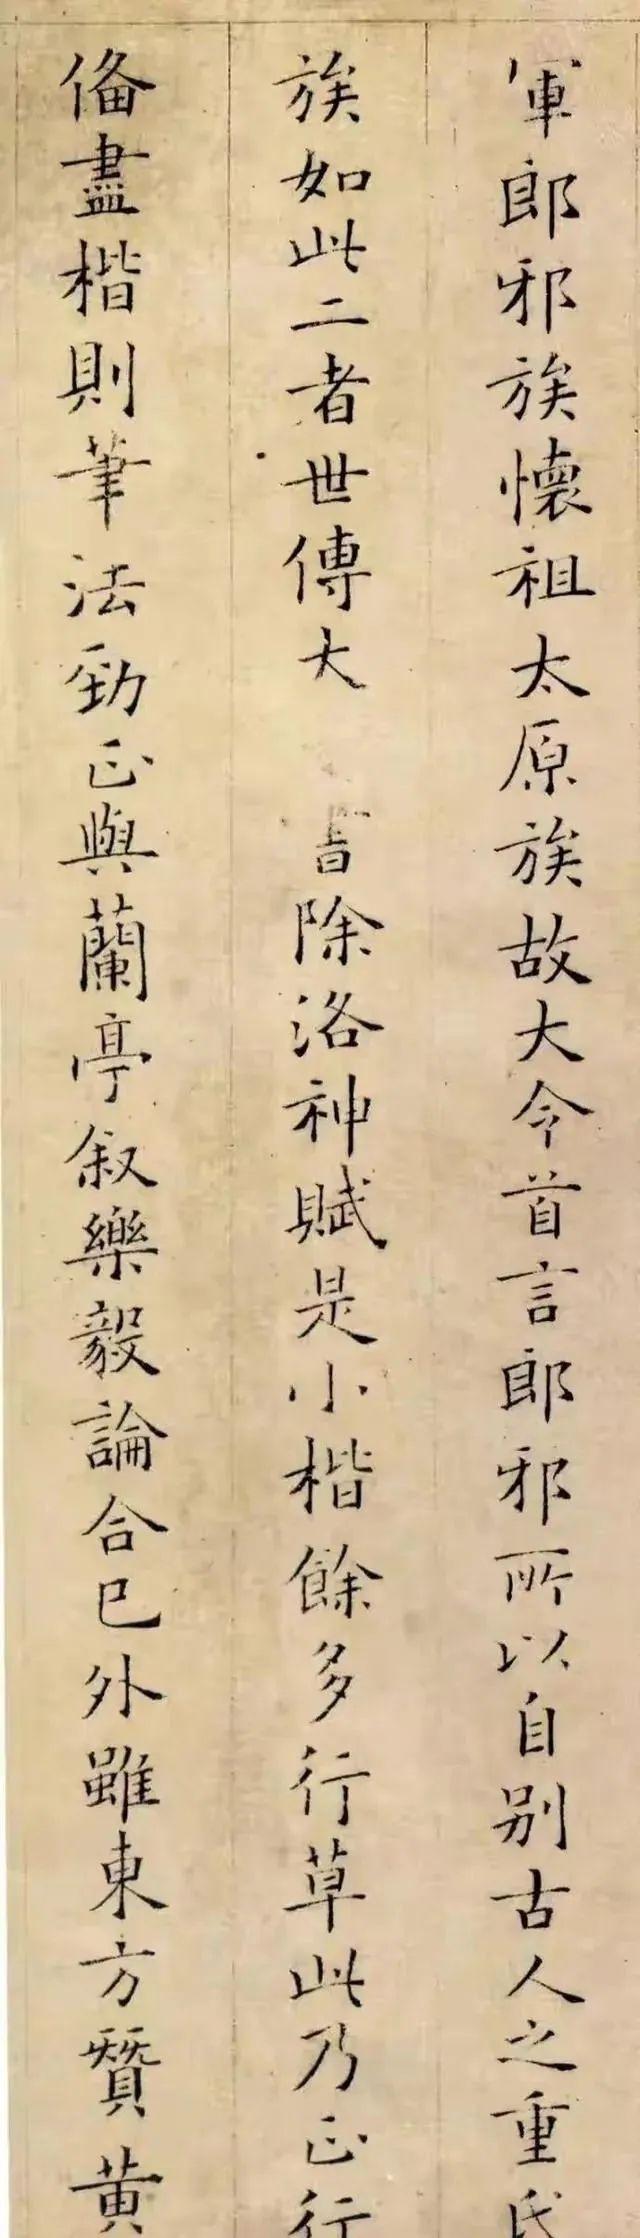 軍郎邪族懷祖太原族故大令首言郎邪所以自别古人之重氏
族如此二者世傳大書除洛神賦是小楷餘多行草此乃正行
俻盡楷則筆法勁正與蘭亭叙樂毅論合已外雖東方贊黄